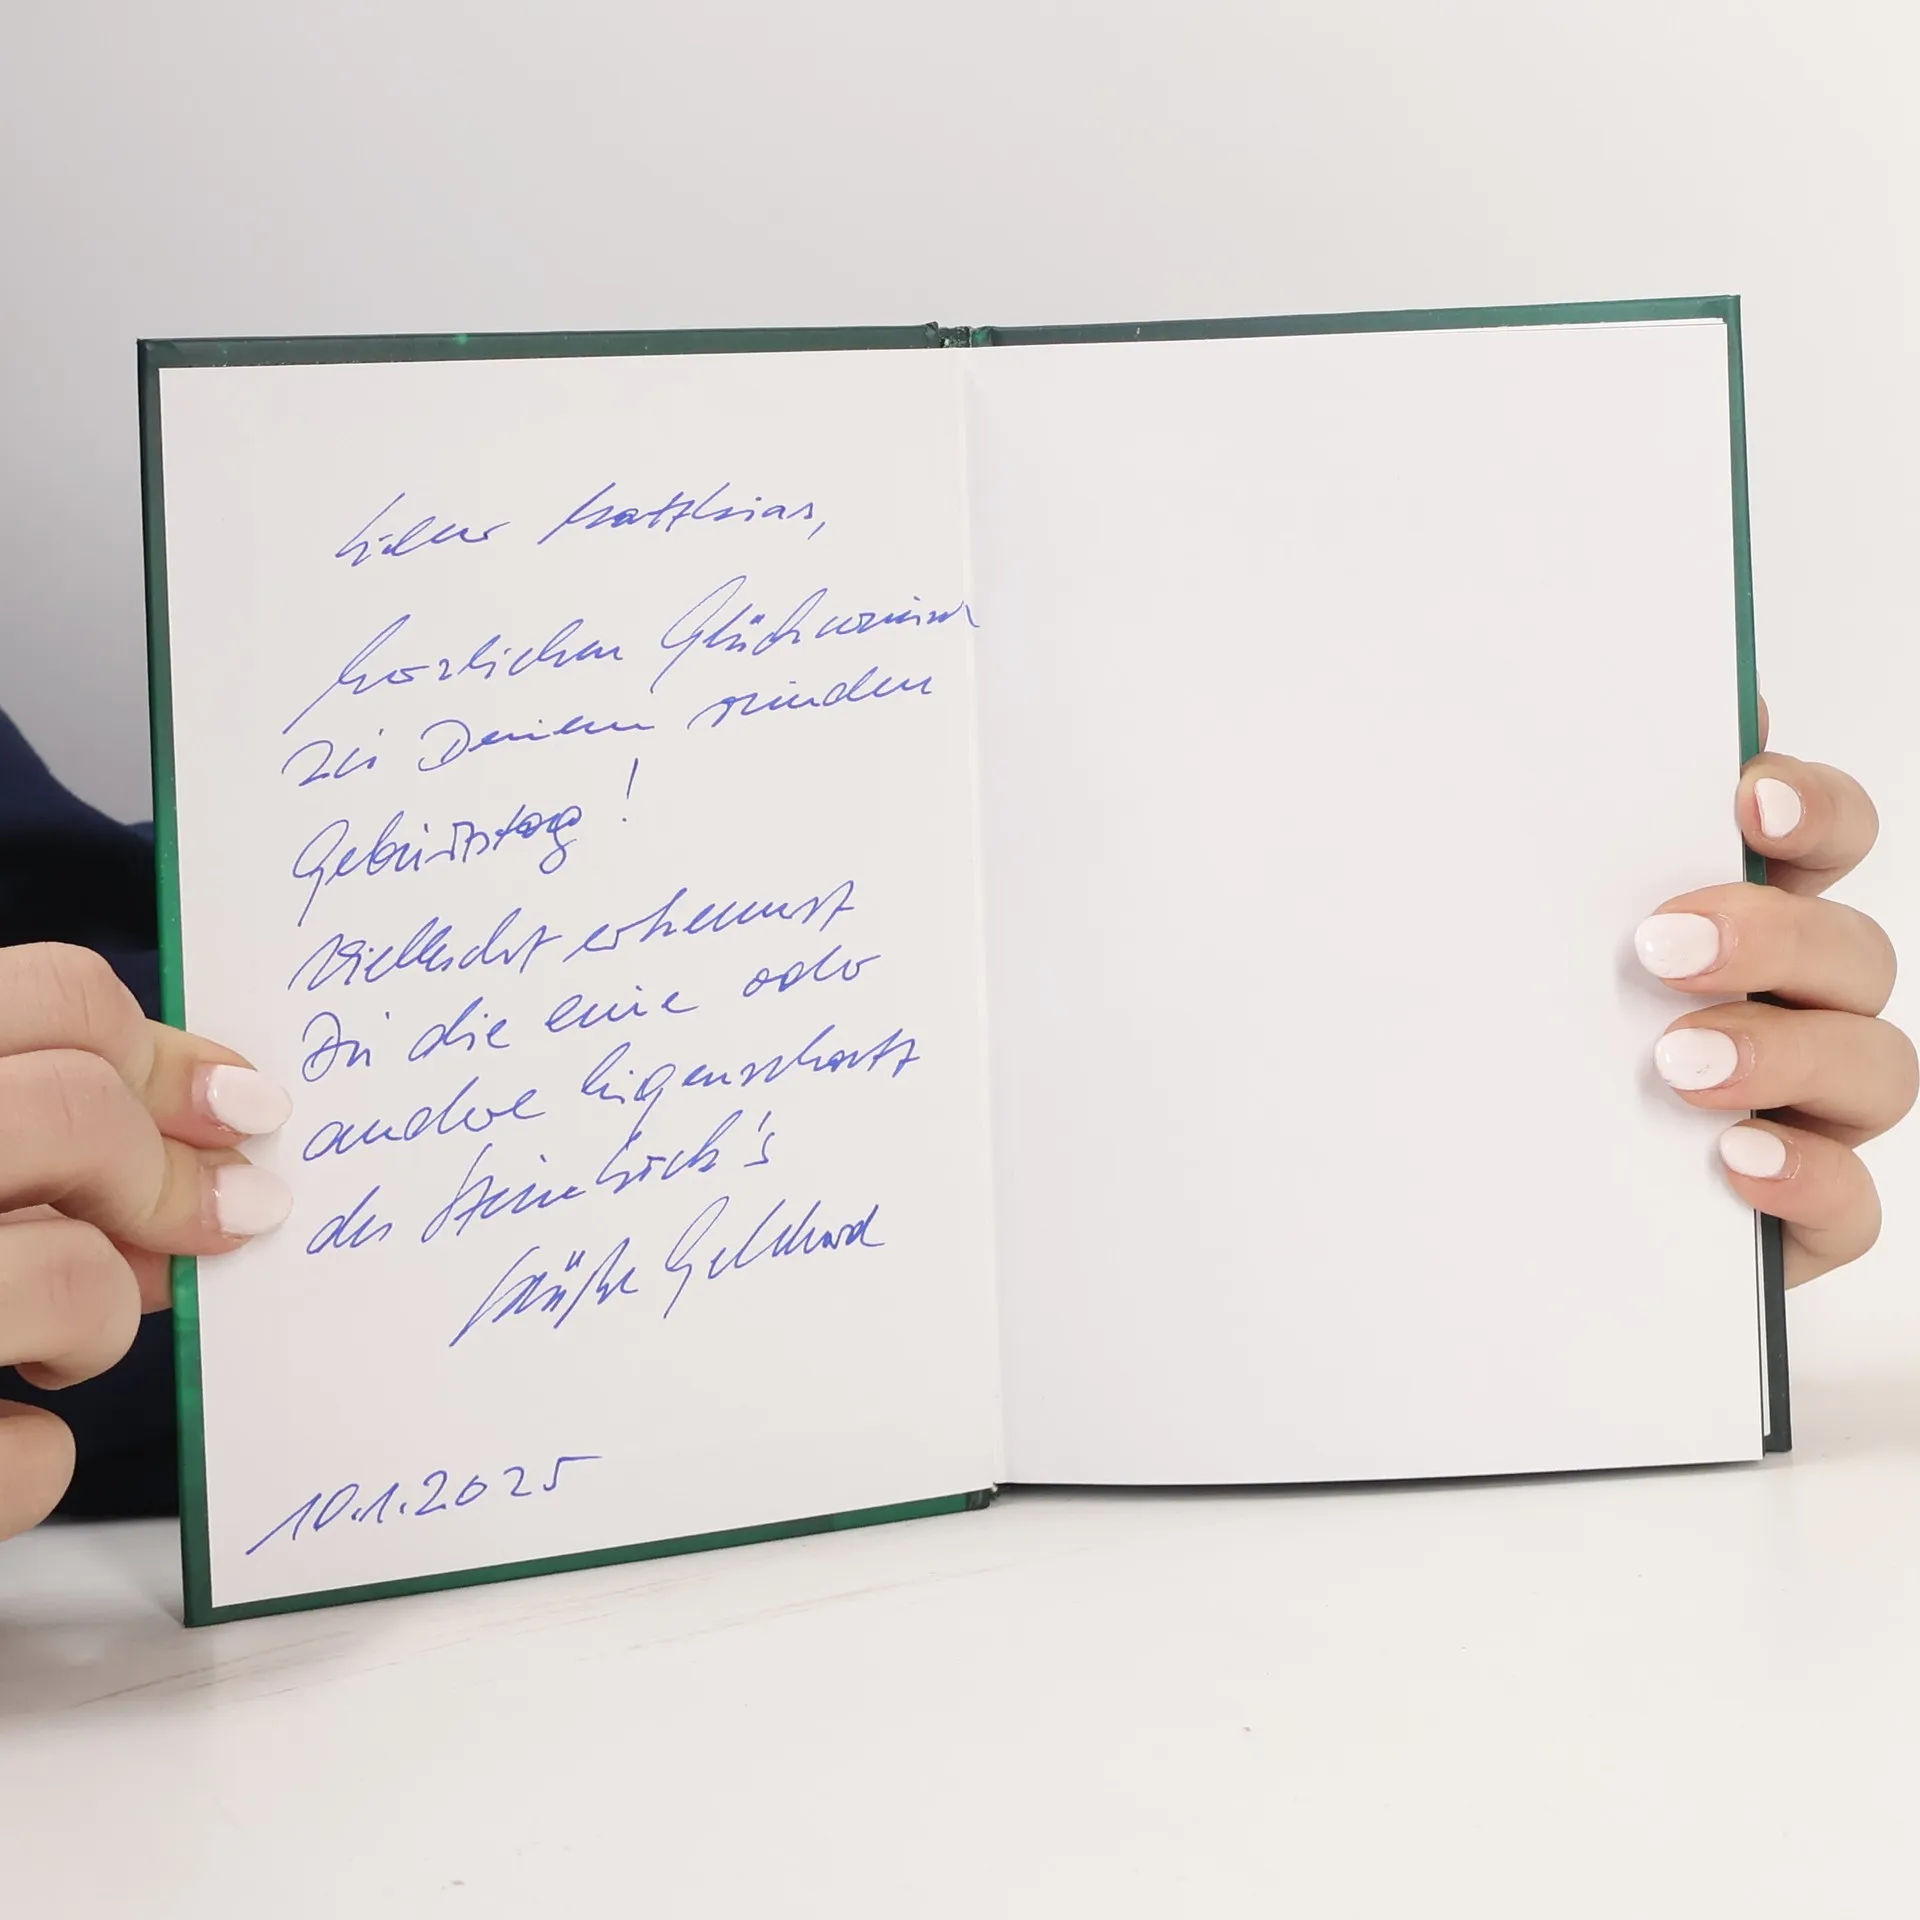 Lieber Matthias,
herzlichen Glückwunsch
zu Deinem runden
Geburtstag!
Vielleicht erkennst
Du die eine oder
andere Eigenschaft
des Steinbock's
Grüße Gebhard
10.1.2025